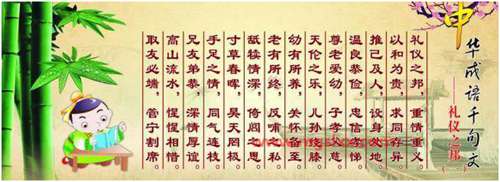 中华成语千句文
——礼仪之邦
礼仪之邦，重情重义
以和为贵，求同存异
推己及人，设身处地
温良恭俭，忠信孝悌
尊老爱幼，子孝父慈
天伦之乐，儿孙绕膝
幼有所养，关怀备至
老有所终，反哺
舐犊情深，倚闾之思
寸草春晖，昊天罔极
手足之情，同气连枝
兄友弟恭，深情厚谊
高山流水，惺惺相惜
取友必端，管宁割席